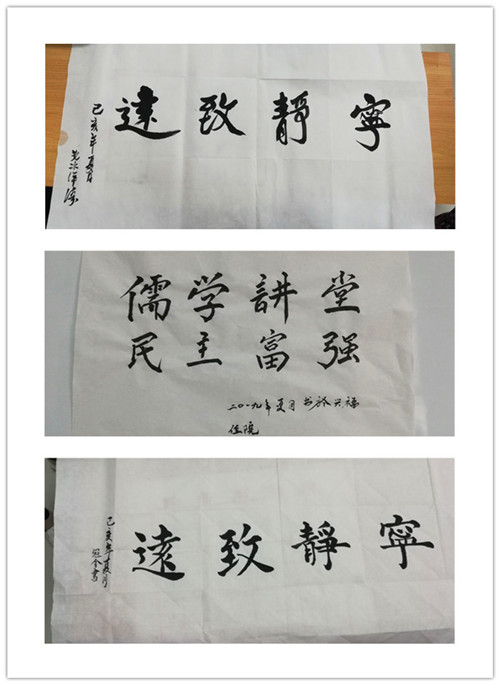 寧靜致遠
己亥年夏
儒学講堂
民主富强
二〇一九年夏月书於
寧靜致遠
己亥年夏月